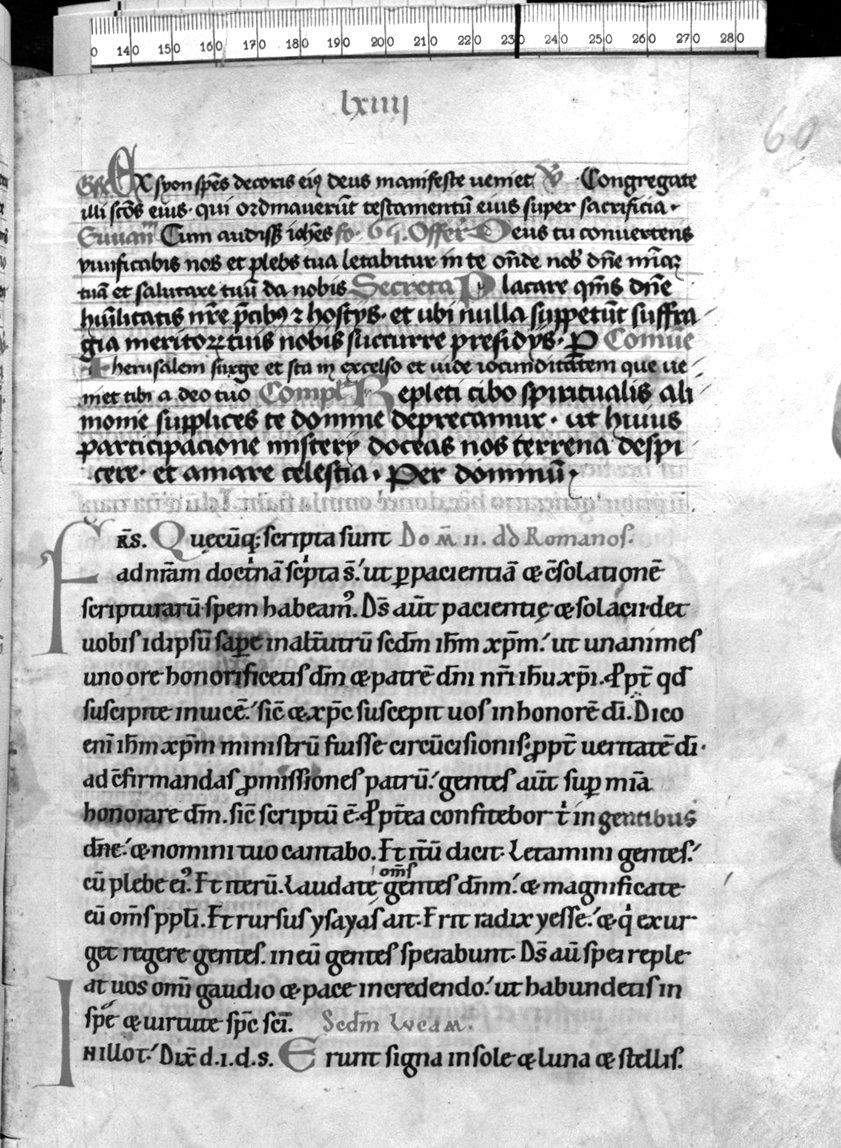 0 140 150 160 170 180 190 200 210 220 230 240 250 260 270 280
lxiiij
60
Gͬ Ex syon spēs decoris eiꝰ deus manifeste veniet ℣ Congregate
illi scōs eius · qui ordinaverūt testamentū eius super sacrificia ·
Euuan̄ Cum audiss; ioh̄es fo · 6 Offer Deus tu convertens
vivificabis nos et plebs tua letabitur in te on̄de nob' dn̄e mīaꝫ
tuā et salutare tuū da nobis Secreta Placare qm̄s dn̄e
hūilitatis nr̄e p̄cibꝰ ⁊ hostijs · et ubi nulla suppetūt suffra
gia meritoꝝ tuis nobis succurre presidijs · P Comūe
Iherusalem surge et sta in excelso et vide iocunditatem que ve
niet tibi a deo tuo Compl̄ Repleti cibo spiritualis ali
monie supplices te domine deprecamur · ut huius
participacione mistery doceas nos terrena despi
cere · et amare celestia · Per dominū
FRS̄. Quęcūq; scripta sunt Dom̄ II. ad Romanos.
ad nr̄am doctͥnā scͥpta s̄.' ut ꝑ pacientiā & c̄solationē
scripturarū spem habeamꝰ. Ds̄ aūt pacientię & solacii · det
uobis idipsū saꝑe inaltūtrū scdm̄ ihm̄ xp̄m.' ut unanimes
uno ore honorificetis dm̄ & patrē dn̄i nr̄i ihu xp̄i. ꝓpt̄ qd
suscipite inuicē.' sic̄ & xp̄c suscepit uos in honorē di̅. Dico
enī ihm̄ xp̄m ministrū fuisse circūcisionis; ꝓpt̄ ueritatē di̅ ·
ad c̄firmandas ꝓmissiones patrū.' gentes aūt suꝑ mīa
honorare dm̄. sic̄ scriptū ē. ꝓpt̄ea confitebor tͥ in gentibus
dn̄e.' & nomini tuo cantabo. Et itū dicit. Letamini gentes.'
cū plebe eiꝰ. Et iterū. Laudate om̄s gentes dn̄m.' & magnificate
eū om̄s ppl̄i. Et rursus ysayas ait. Erit radix yesse.' & qͥ exur
get regere gentes. in eū gentes sperabunt. Ds̄ aū spei reple
at uos om̄i gaudio & pace in credendo.' ut habundetis in
spē & uirtute sp̄c sc̄i. Scdm̄ Lucam.
IN illo t̄.' Dix̄ d.i.d.s. Erunt signa in sole & luna & stellis.